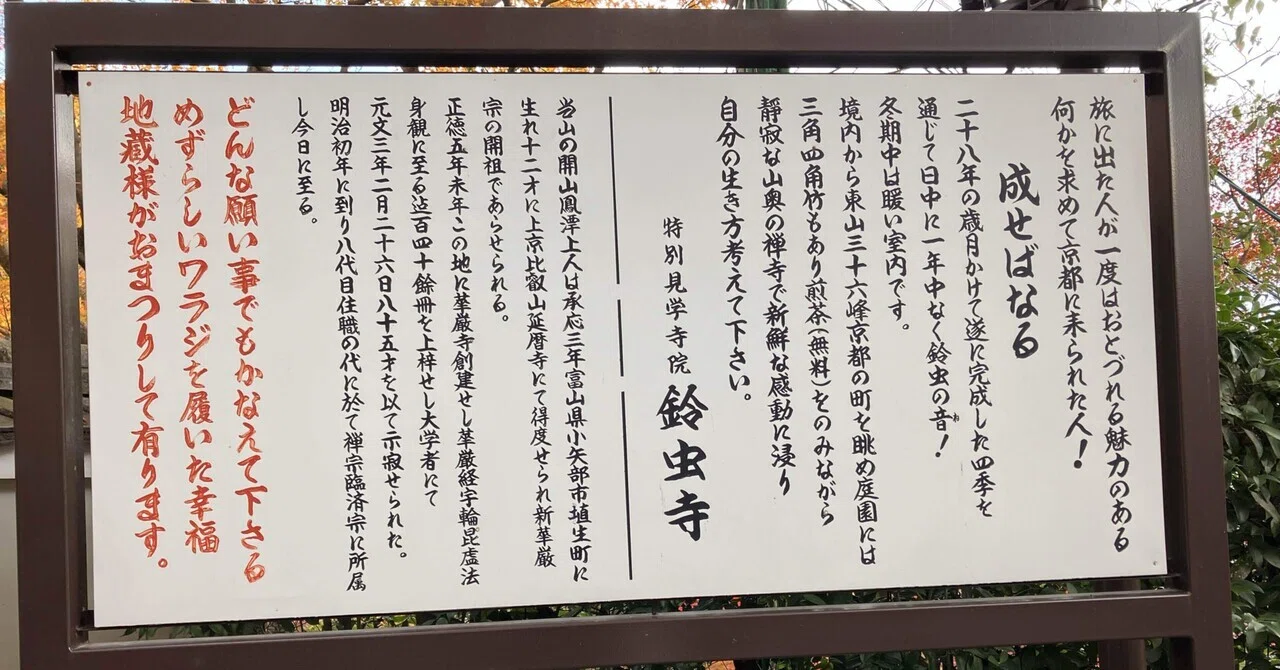 旅に出た人が一度はおとづれる魅力のある
何かを求めて京都に来られた人！
成せばなる
二十八年の歳月かけて遂に完成した四季を
通じて日中に一年中なく鈴虫の音！
ね
冬期中は暖い室内です。
境内から東山三十六峰京都の町を眺め庭園には
三角四角竹もあり煎茶(無料)をのみながら
静寂な山奥の禅寺で新鮮な感動に浸り
自分の生き方考えて下さい。
特別見学寺院 鈴虫寺
当山の開山鳳潭上人は承応三年富山県小矢部市埴生町に
生れ十二才に上京比叡山延暦寺にて得度せられ新華厳
宗の開祖であらせられる。
正徳五年未年この地に華厳寺創建せし華厳経字輪毘盧法
身観に至る迠百四十餘冊を上梓せし大学者にて
元文三年二月二十六日八十五才を以て示寂せられた。
明治初年に到り八代目住職の代に於て禅宗臨済宗に所属
し今日に至る。
どんな願い事でもかなえて下さる
めずらしいワラジを履いた幸福
地蔵様がおまつりして有ります。